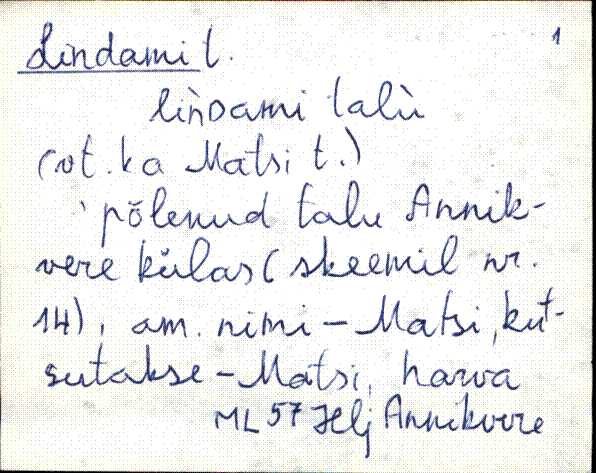 1
Lindami t.
lìnᴅami talù
(vt. ka Matsi t.)
põlenud talu Annik-
vere külas (skeemil nr.
14), am. nimi – Matsi, kut-
sutakse – Matsi, harva
ML 57 Hlj Annikvere